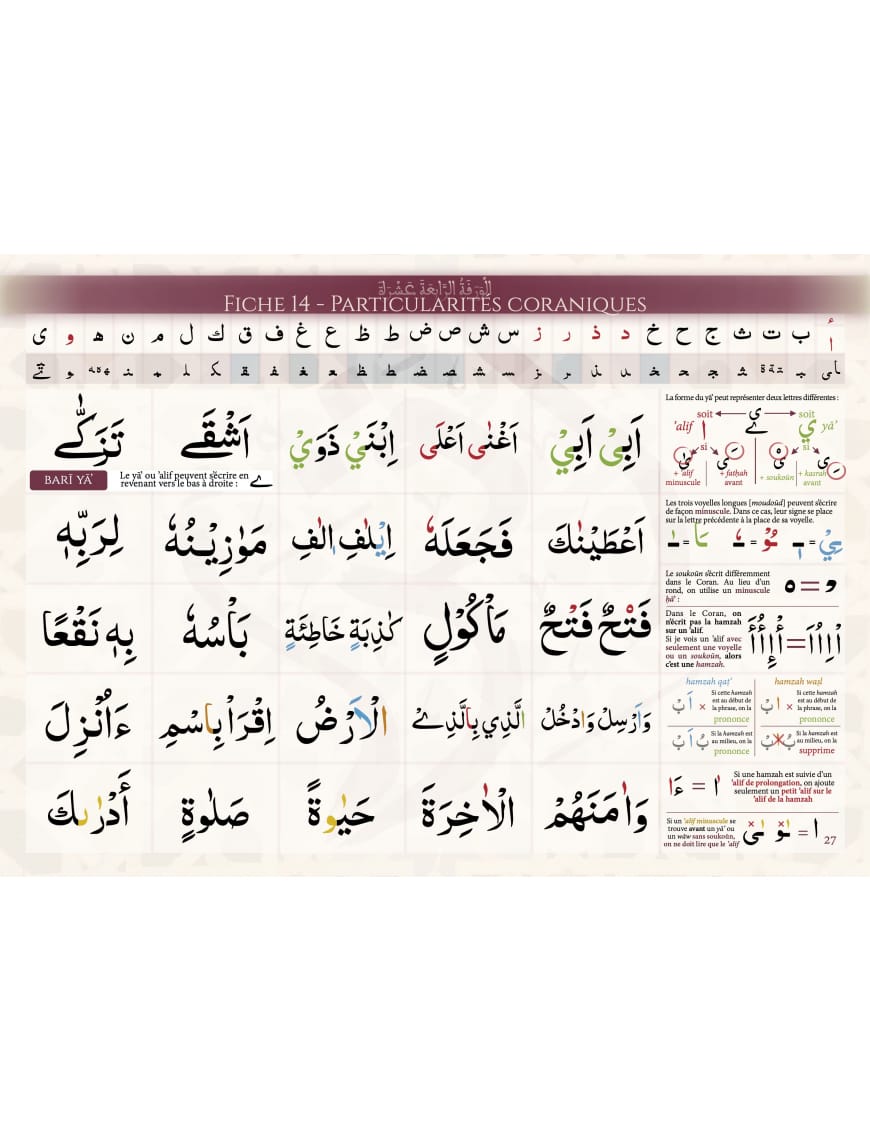 اَلْوَرَقَةُ الرَّابِعَةَ عَشْرَةَ
FICHE 14 – PARTICULARITÉS CORANIQUES
أ ب ت ث ج ح خ د ذ ر ز س ش ص ض ط ظ ع غ ف ق ك ل م ن ه و ى
اَبِیْ اَبِيْ اَغْنٰى اَعْلَى اِبْنَيْ ذَوَيْ اَشْقَے تَزَكّٰے
BARĪ YĀ’
Le yā’ ou ’alif peuvent s’écrire en
revenant vers le bas à droite : ے
اَعْطَيْنٰكَ فَجَعَلَهٗ اِيْلٰفِ اٖلٰفِ مَوٰزِيْنُهٗ لِرَبِّهٖ
فَتْحٌ فَتْحٌ مَاْكُوْلٍ كٰذِبَةٍ خَاطِئَةٍ بَاْسُهٗ بِهٖ نَقْعًا
وَاَرْسِلْ وَادْخُلْ الَّذِي بِالَّذِے الْاَرْضُ اِقْرَاْ بِاسْمِ ءَاُنْزِلَ
وَاٰمَنَهُمْ الْاٰخِرَةَ حَيٰوةً صَلٰوةٍ أَدْرٰىكَ
La forme du yā’ peut représenter deux lettres différentes :
soit ى soit
’alif ا ے ي yā’
si si
+ ’alif minuscule
+ fatḥah avant
+ soukoūn
+ kasrah avant
Les trois voyelles longues [moudoūd] peuvent s’écrire
de façon minuscule. Dans ce cas, leur signe se place
sur la lettre précédente à la place de sa voyelle.
Le soukoūn s’écrit différemment
dans le Coran. Au lieu d’un
rond, on utilise un minuscule
ḥā’ :
Dans le Coran, on
n’écrit pas la hamzah
sur un ’alif.
Si je vois un ’alif avec
seulement une voyelle
ou un soukoūn, alors
c’est une hamzah.
hamzah qaṭ‘ hamzah waṣl
Si cette hamzah
est au début de
la phrase, on la
prononce
Si cette hamzah
est au début de
la phrase, on la
prononce
Si la hamzah est
au milieu, on la
prononce
Si la hamzah est
au milieu, on la
supprime
Si une hamzah est suivie d’un
’alif de prolongation, on ajoute
seulement un petit ’alif sur le
’alif de la hamzah
Si un ’alif minuscule se
trouve avant un yā’ ou
un wāw sans soukoūn,
on ne doit lire que le ’alif
27